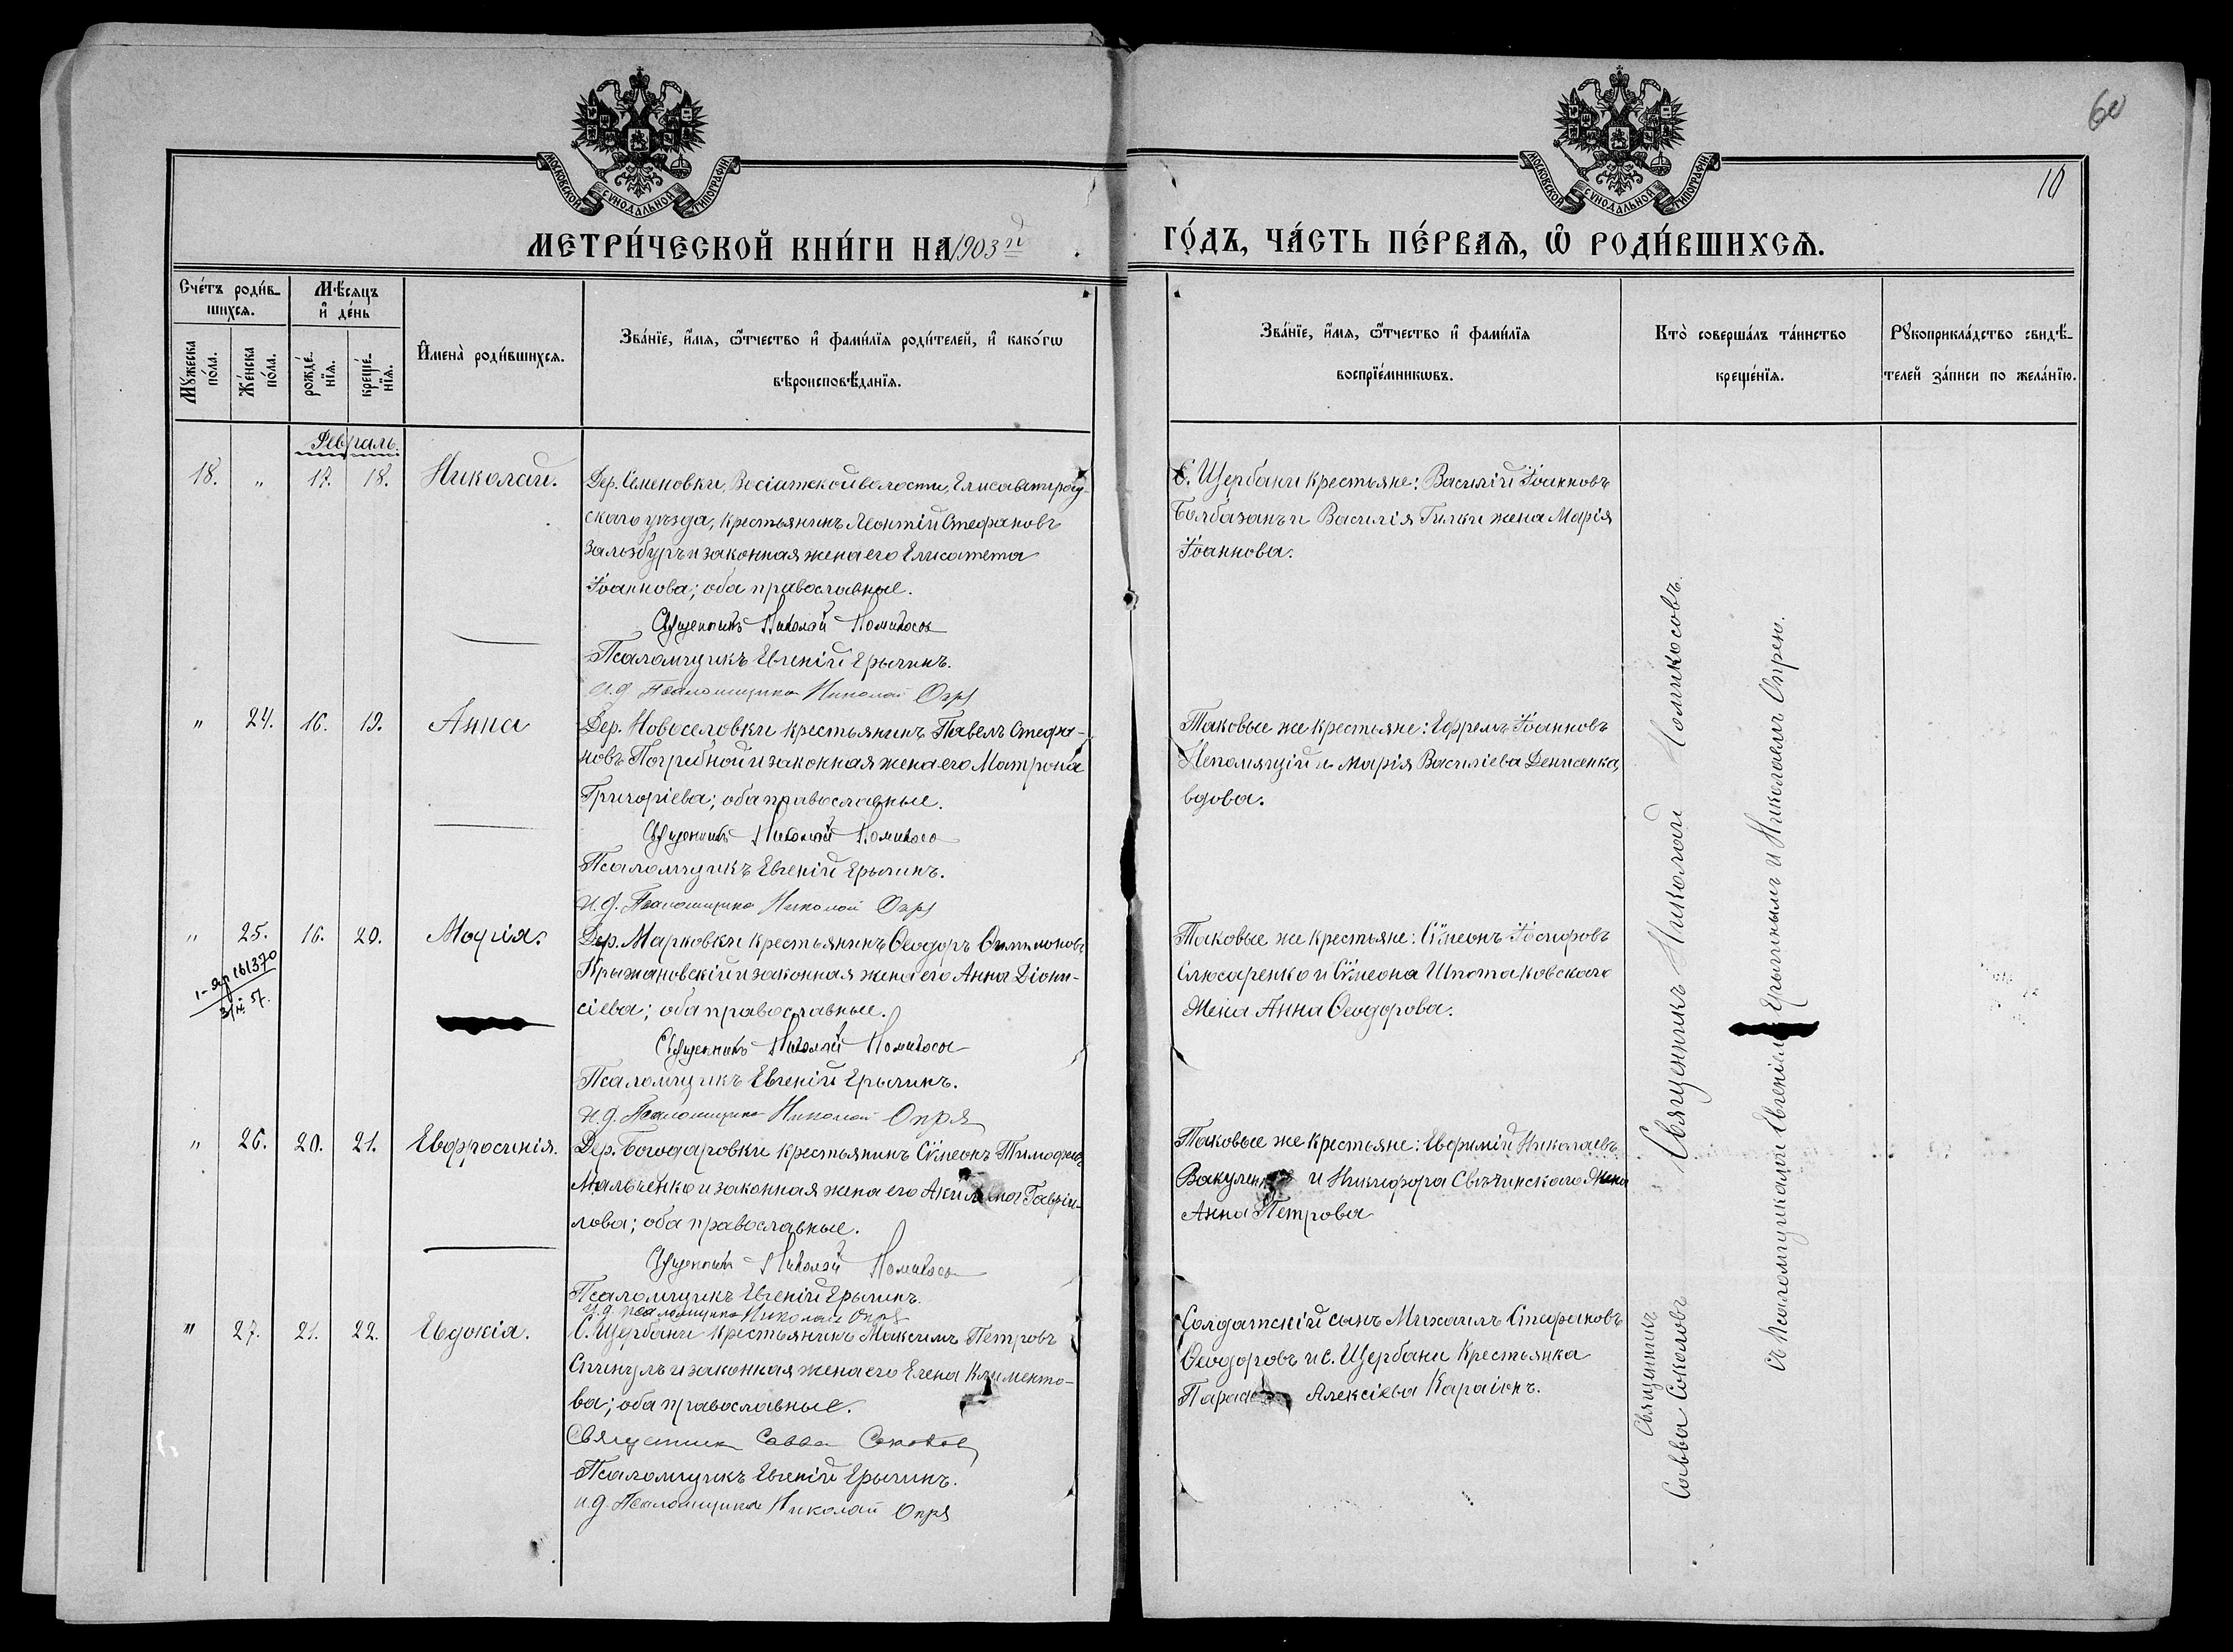 60
10
МОСКОВСКОЙ СѴНОДАЛЬНОЙ ТИПОГРАФІИ
МОСКОВСКОЙ СѴНОДАЛЬНОЙ ТИПОГРАФІИ
МЕТРИ́ЧЕСКОЙ КНИ́ГИ НА 1903й
ГО́ДЪ, ЧА́СТЬ ПЕ́РВАѦ, Ѡ҆ РОДИ́ВШИХСѦ.
Сче́тъ роди́в-
шихсѧ.
Мꙋ́жеска по́ла.
Же́нска по́ла.
Мѣ́сѧцъ
и҆ де́нь
рожде́-
нїѧ.
креще́-
нїѧ.
И҆мена̀ роди́вшихсѧ.
Зва́нїе, и҆́мѧ, ѻ҆́тчество и҆ фами́лїѧ роди́телей, и҆ како́гѡ
вѣроисповѣ́данїѧ.
Зва́нїе, и҆́мѧ, ѻ҆́тчество и҆ фами́лїѧ
воспрїе́мникѡвъ.
Кто̀ соверша́лъ та́инство
креще́нїѧ.
Рꙋкоприкла́дство свидѣ́-
телей за́писи по жела́нїю.
Февраль.
18. " 17. 18. Николай.
Дер. Семеновки, Восіатской волости, Елисаветград-
скаго уѣзда, крестьянинъ Леонтій Стефановъ
Зальзбургъ и законная жена его Елисавета
Іоаннова; оба православные.
Священникъ Николай Поликосов
Псаломщикъ Евгеній Ерыгинъ.
и.д. Псаломщика Николай Опря
С. Щербани крестьяне: Василій Іоанновъ
Болбазанъ и Василія Гилки жена Марія
Іоаннова.
" 24. 16. 19. Анна
Дер. Новоселовки крестьянинъ Павелъ Стефа-
новъ Погрибной и законная жена его Матрона
Григоріева; оба православные.
Священникъ Николай
Псаломщикъ Евгеній Ерыгинъ.
и.д. Псаломщика Николай Опря
Таковые же крестьяне: Ефремъ Іоанновъ
Непомящій и Марія Василіева Денисенка,
вдова.
" 25. 16. 20. Марія.
3/IX 57.
Дер. Марковки крестьянинъ Ѳеодоръ Филимоновъ
Крыжановскій и законная жена его Анна Діони-
сіева; оба православные.
Священникъ Николай
Псаломщикъ Евгеній Ерыгинъ.
и.д. Псаломщика Николай Опря
Таковые же крестьяне: Сѵмеонъ Іосифовъ
Слюсаренко и Сѵмеона Шпотаковскаго
жена Анна Ѳеодорова.
" 26. 20. 21. Евфросинія.
Дер. Богодаровки крестьянинъ Сѵмеонъ Тимофеевъ
Мальченко и законная жена его Акилина Гаврии-
лова; оба православные.
Священникъ Николай
Псаломщикъ Евгеній Ерыгинъ.
и.д. псаломщика Николай Опря
Таковые же крестьяне: Евфимій Николаевъ
Вакуленко и Никифора Свѣтинскаго жена
Анна Петрова
"' 27. 21. 22. Евдокія.
С. Щербани крестьянинъ Максимъ Петровъ
Спинулъ и законная жена его Елена Клименто-
ва; оба православные.
Священник Савва Соколов
Псаломщикъ Евгеній Ерыгинъ.
и.д. Псаломщика Николай Опря
Солдатскій сынъ Михаилъ Стефановъ
Ѳеодоровъ и С. Щербани крестьянка
Алексіева Караіонъ.
Священникъ Николай Поликосовъ
Священникъ
Савва Соколовъ
съ Псаломщиками Евгеніемъ Ерыгинымъ и Николаемъ Опрею.